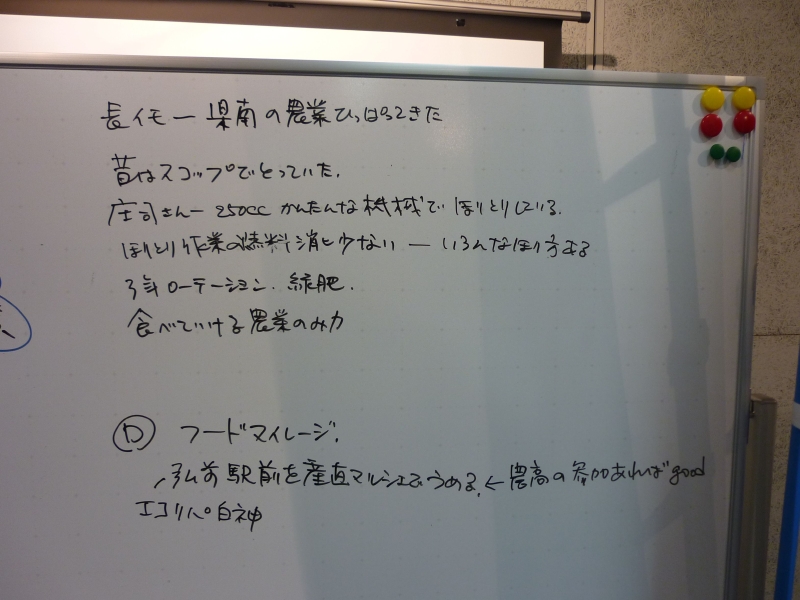 長イモー県南の農業ひっぱってきた
昔はスコップでとっていた.
庄司さんー250cc かんたんな機械でほりとりしている.
ほりとり作業の燃料消ヒ少ない ー いろんなほり方ある
3年ローテーション. 緑肥.
食べていける農業のみ力
D フードマイレージ.
弘前駅前を産直マルシェでうめる. ← 農高の参加あれば good
エコリパ白神